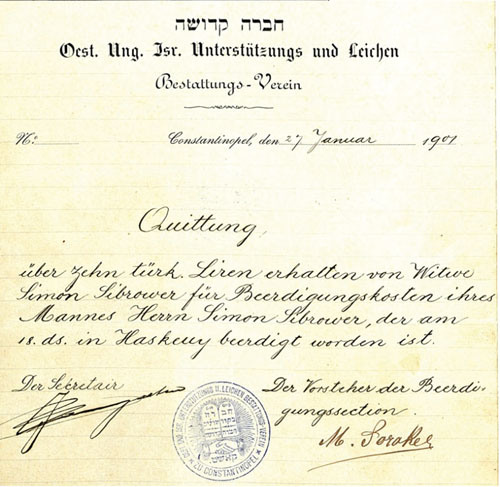 חברה קדושה
Oest. Ung. Isr. Unterstützungs und Leichen
Bestattungs-Verein
No.
Constantinopel, den 27 Januar 1901
Quittung
über zehn türk. Liren erhalten von Witwe
Simon Sibrower für Beerdigungskosten ihres
Mannes Herrn Simon Sibrower, der am
18. ds. in Haskeuy beerdigt worden ist.
Der Secretair
Der Vorsteher der Beerdi-
gungssection.
UNTERSTÜTZUNGS U. LEICHEN BESTATTUNGS-VEREIN
ZU CONSTANTINOPEL